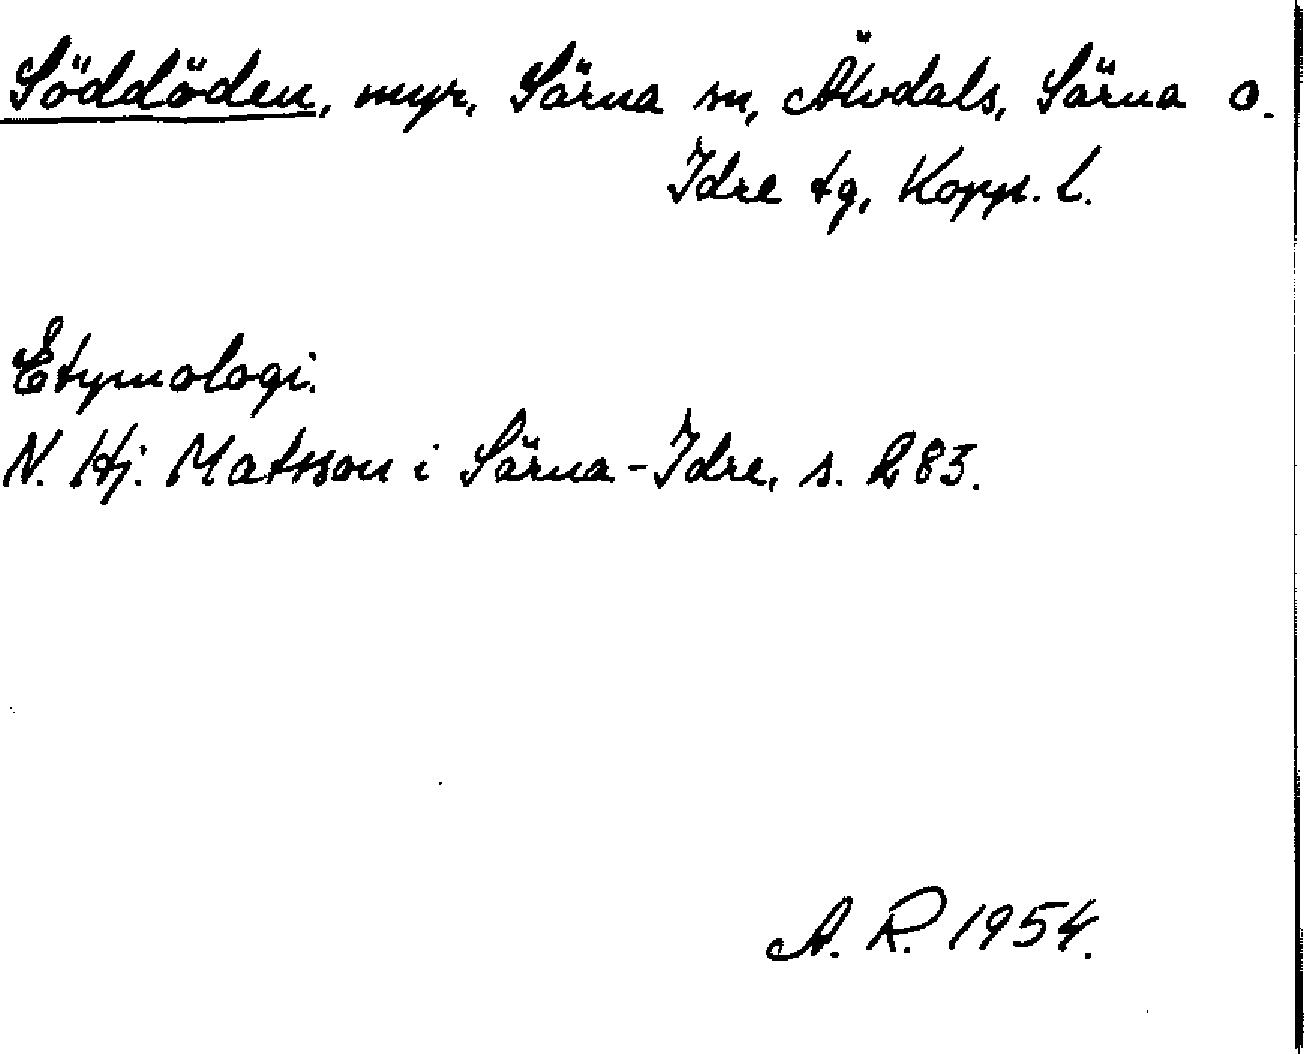 Söddöden, myr, Särna sn, Älvdals, Särna o.
Idre tg, Kopp. l.
Etymologi.
N. Hj. Matsson i Särna-Idre, s. 283.
A. R. 1954.